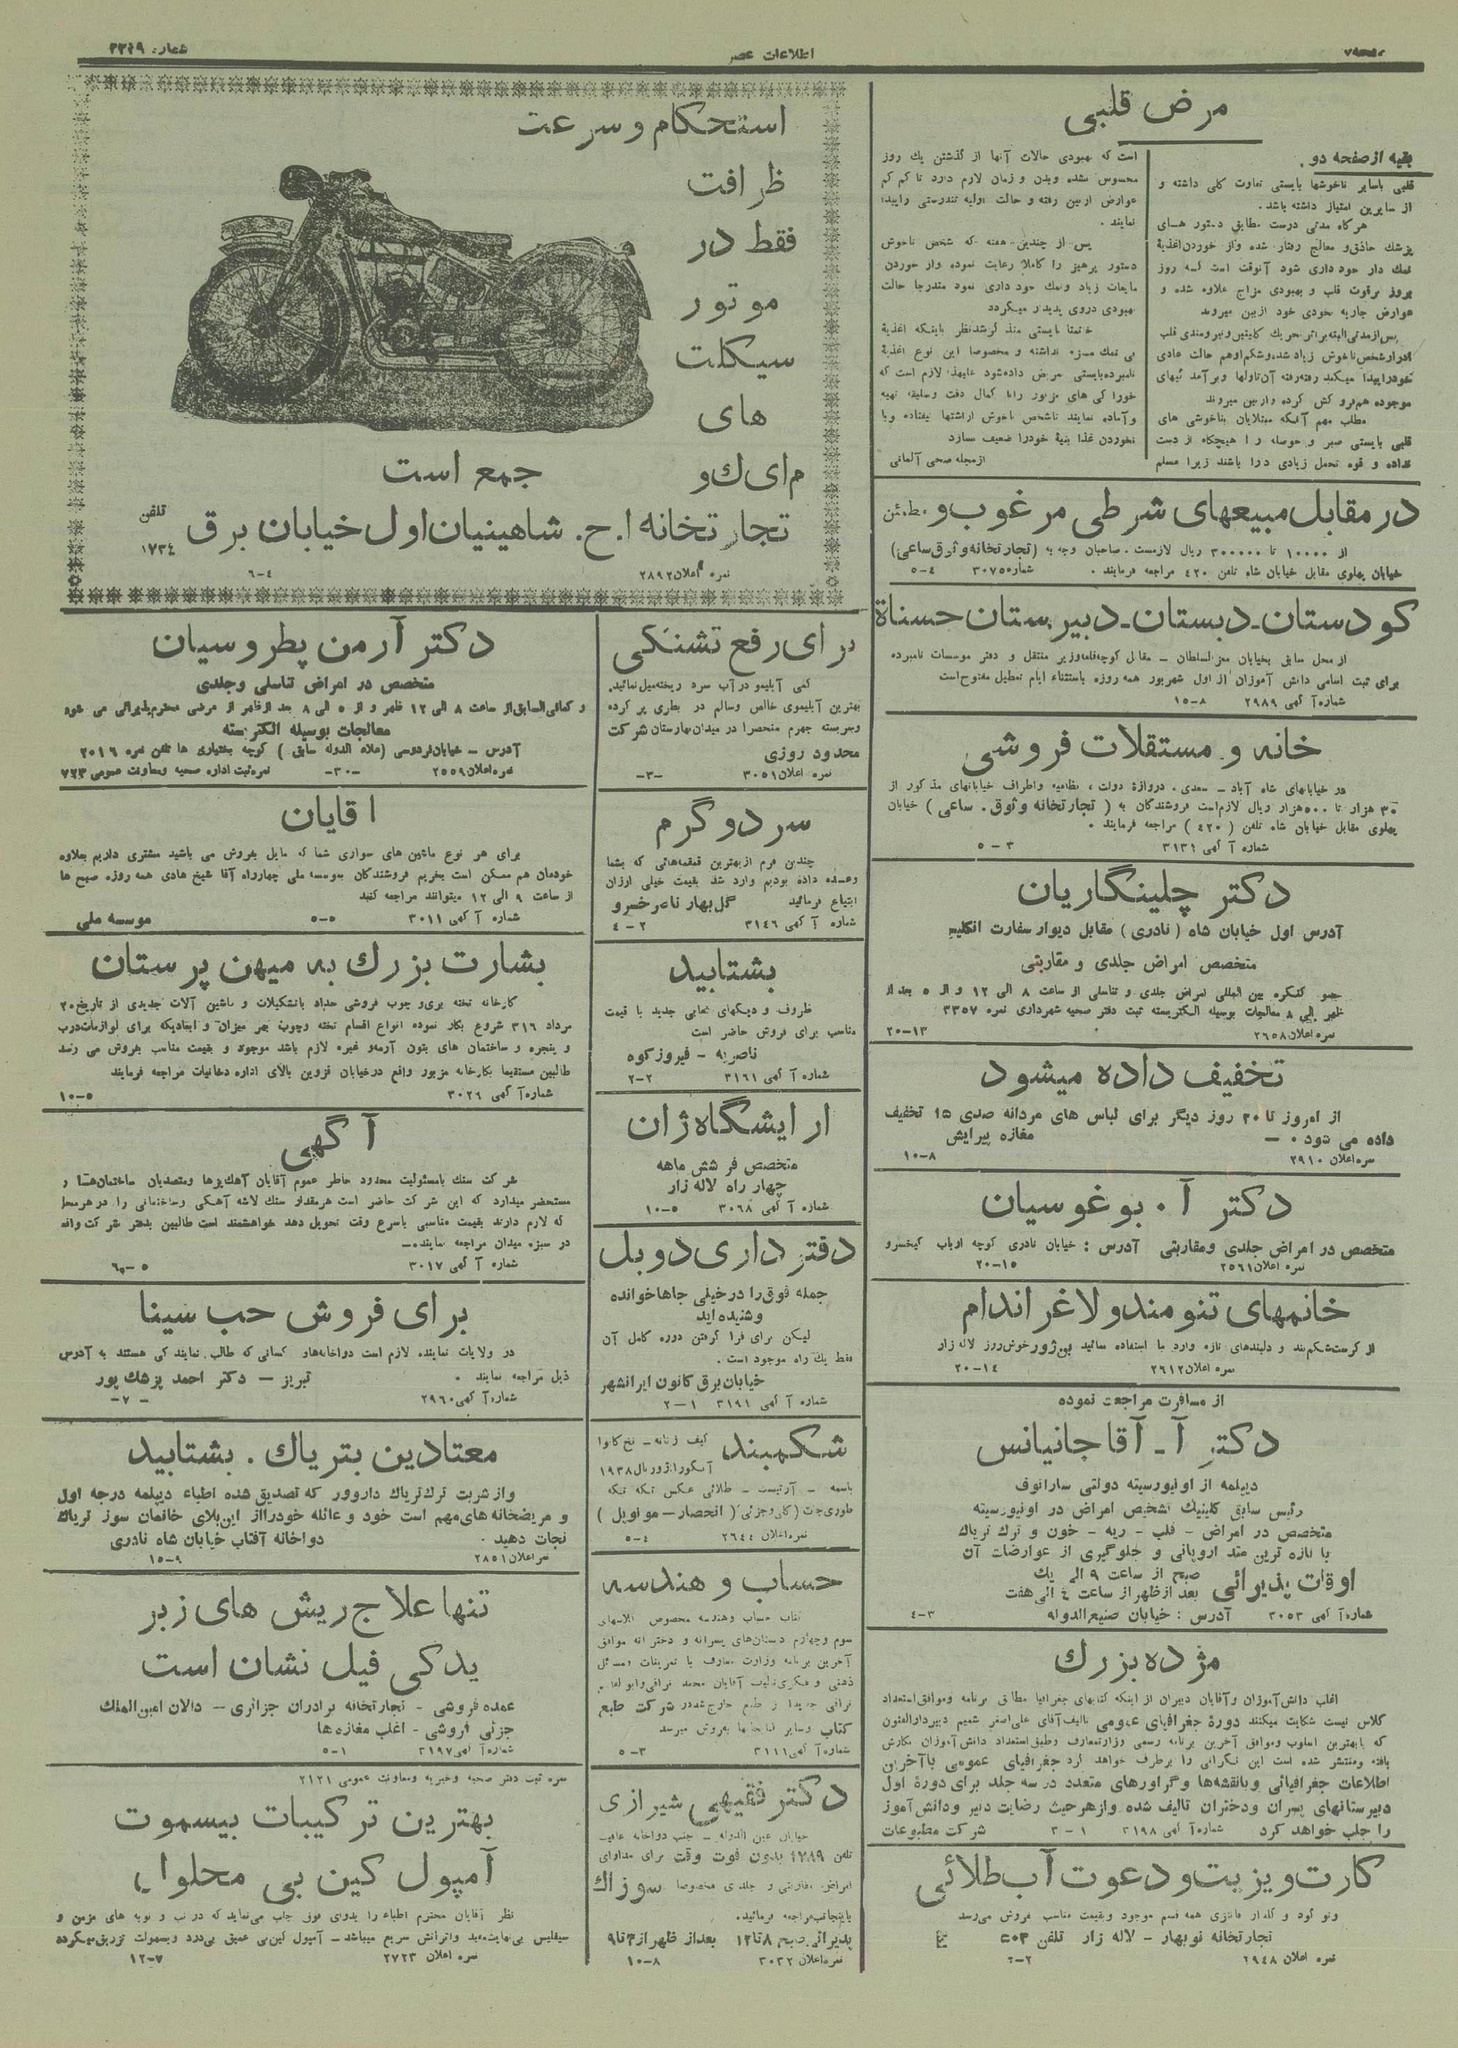 صفحه ۷
اطلاعات عصر
شماره ۳۲۴۹
مرض قلبی
بقیه از صفحه دو
قلبی باسایر ناخوشها بایستی تفاوت کلی داشته و
از سایرین امتیاز داشته باشد.
هرگاه مدتی درست مطابق دستور های
پزشك حاذق و معالج رفتار شده و از خوردن اغذیهٔ
نمك دار خود داری شود آنوقت است که روز
بروز برقوت قلب و بهبودی مزاج علاوه شده و
عوارض جاریه بخودی خود ازبین میروند
پس از مدتی البته براثر تحریك کلیتین و نیرومندی قلب
ادرار شخص ناخوش زیاد شده و شکم او هم حالت عادی
خود را پیدا میکند رفته رفته آن تاولها و برآمدگیهای
موجوده هم فروکش کرده و ازبین میروند
مطلب مهم آنکه مبتلایان بناخوشی های
قلبی بایستی صبر و حوصله را هیچگاه از دست
نداده و قوه تحمل زیادی دارا باشند زیرا مسلم
است که بهبودی حالات آنها از گذشتن یك روز
محسوس نشده و بدن و زمان لازم دارد تا کم کم
عوارض ازبین رفته و حالت اولیه تندرستی را پیدا
نمایند.
پس از چندین هفته که شخص ناخوش
دستور پرهیز را کاملا رعایت نموده و از خوردن
مایعات زیاد و نمك خود داری نمود متدرجا حالت
بهبودی دروی پدیدار میگردد
ختمتا بایستی متذکر شد نظر باینکه اغذیهٔ
بی نمك مزه نداشته و مخصوصا این نوع اغذیهٔ
نامبرده بایستی بمریض داده شود علیهذا لازم است که
خوراکی های مزبور را با کمال دقت و سلیقه تهیه
و آماده نمایند تا شخص ناخوش از اشتها نیفتاده و با
نخوردن غذا بنیهٔ خودرا ضعیف نسازد
ازمجله صحی آلمانی
در مقابل مبیعهای شرطی مرغوب و مطمئن
از ۱۰۰۰۰ تا ۳۰۰۰۰۰ ریال لازمست. صاحبان وجه به (تجارتخانه وثوق ساعی)
خیابان پهلوی مقابل خیابان شاه تلفن ۴۲۰ مراجعه فرمایند. شماره ۳۰۷۵ ۴-۵
کودکستان - دبستان - دبیرستان حسنات
از محل سابق بخیابان معزالسلطان - مقابل کوچه قلعه وزیر منتقل و دفتر موسسات نامبرده
برای ثبت اسامی دانش آموزان از اول شهریور همه روزه باستثناء ایام تعطیل مفتوح است
شماره آگهی ۲۹۸۹ ۸-۱۵
خانه و مستقلات فروشی
در خیابانهای شاه آباد - سعدی. دروازهٔ دولت، نظامیه و اطراف خیابانهای مذکور از
۳۰ هزار تا ۵۰۰ هزار ریال لازم است فروشندگان به (تجارتخانه وثوق. ساعی) خیابان
پهلوی مقابل خیابان شاه تلفن (۴۲۰) مراجعه فرمایند.
شماره آگهی ۳۱۳۱ ۳-۵
دکتر چلینگاریان
آدرس اول خیابان شاه (نادری) مقابل دیوار سفارت انگلیس
متخصص امراض جلدی و مقاربتی
عضو کنگره بین المللی امراض جلدی و تناسلی از ساعت ۸ الی ۱۲ و از ۵ بعد از
ظهر الی ۸ معالجات بوسیله الکتریسته ثبت دفتر صحیه شهرداری نمره ۳۳۵۷
نمره اعلان ۲۶۵۸ ۱۳-۲۰
تخفیف داده میشود
از امروز تا ۲۰ روز دیگر برای لباس های مردانه صدی ۱۵ تخفیف
داده می شود. - مغازه پیرایش
نمره اعلان ۲۹۱۰ ۸-۱۰
دکتر آ. بوغوسیان
متخصص در امراض جلدی و مقاربتی آدرس: خیابان نادری کوچه ارباب کیخسرو
نمره اعلان ۲۵۶۱ ۱۵-۲۰
خانمهای تنومند و لاغر اندام
از کرست شکم بند و دلبندهای تازه وارد ما استفاده نمائید بن ژور خوش روز لاله زار
نمره اعلان ۲۶۱۲ ۱۴-۲۰
از مسافرت مراجعت نموده
دکتر آ - آقاجانیانس
دیپلمه از اونیورسیته دولتی ساراتوف
رئیس سابق کلینیك تشخیص امراض در اونیورسیته
متخصص در امراض - قلب - ریه - خون و ترك تریاك
با تازه ترین متد اروپائی و جلوگیری از عوارضات آن
اوقات پذیرائی صبح از ساعت ۹ الی یك
بعد ازظهر از ساعت ۴ الی هفت
شماره آگهی ۳۰۵۳ آدرس: خیابان صنیع الدوله ۳-۴
مژده بزرك
اغلب دانش آموزان و آقایان دبیران از اینکه کتابهای جغرافیا مطابق برنامه و موافق استعداد
کلاس نیست شکایت میکنند دورهٔ جغرافیای عمومی تالیف آقای علی اصغر شمیم دبیر دارالفنون
که با بهترین اسلوب و موافق آخرین برنامه رسمی وزارتمعارف و طبق استعداد دانش آموزان نگارش
یافته و منتشر شده است این نگرانی را برطرف خواهد کرد جغرافیای عمومی با آخرین
اطلاعات جغرافیائی و بانقشه‌ها و گراورهای متعدد در سه جلد برای دورهٔ اول
دبیرستانهای پسران و دختران تالیف شده و از هر حیث رضایت دبیر و دانش آموز
را جلب خواهد کرد شماره آگهی ۳۱۹۸ ۱-۳ شرکت مطبوعات
کارت ویزیت و دعوت آب طلائی
و نو گود و گلدار فانتزی همه قسم موجود و بقیمت مناسب فروش می‌رسد
تجارتخانه نوبهار - لاله زار تلفن
نمره اعلان ۲۹۴۸ ۲-۲
استحکام و سرعت
ظرافت
فقط در
موتور
سیکلت
های
م‌ای‌ك‌و
جمع است
تجارتخانه ا. ح. شاهینیان اول خیابان برق تلفن
۱۷۳۴
نمره اعلان ۲۸۹۲ ۴-۶
برای رفع تشنگی
کمی آبلیمو در آب سرد ریخته میل نمائید.
بهترین آبلیموی خالص و سالم در بطری پر کرده
و سربسته جهرم منحصرا در میدان بهارستان شرکت
محدود روزی
نمره اعلان ۳۰۵۱ -۳-
سرد و گرم
چندین فرم از بهترین قمقمه‌هائی که بشما
وعده داده بودیم وارد شد بقیمت خیلی ارزان
ابتیاع فرمائید گل بهار ناصرخسرو
شماره آگهی ۳۱۴۶ ۲-۴
بشتابید
ظروف و دیگهای لعابی جدید با قیمت
مناسب برای فروش حاضر است
ناصریه - فیروزکوه
شماره آگهی ۳۱۶۱ ۲-۲
ارایشگاه ژان
متخصص فر شش ماهه
چهار راه لاله زار
شماره آگهی ۳۰۶۸ ۵-۱۰
دفتر داری دوبل
جمله فوق را در خیلی جاها خوانده
و شنیده اید
لیکن برای فرا گرفتن دوره کامل آن
فقط یك راه موجود است.
خیابان برق کانون ایرانشهر
شماره آگهی ۳۱۹۱ ۱-۲
شکمبند کیف زنانه - نخ کانوا
آنگورا ژورنال ۱۹۳۸
باسمه - آرتیست - طلائی عکس تیکه تیکه
طوری جات (کلی و جزئی) (انحصار - مونوپل)
نمره اعلان ۲۶۴۴ ۴-۵
حساب و هندسه
کتاب حساب و هندسه مخصوص کلاسهای
سوم و چهارم دبستان‌های پسرانه و دخترانه موافق
آخرین برنامه وزارت معارف با تمرینات و مسائل
ذهنی و فکری تالیف آقایان محمد نراقی و ابوالقاسم
نراقی جدیدا از طبع خارج شده در شرکت طبع
کتاب و سایر کتابخانها بفروش میرسد
شماره آگهی ۳۱۱۱ ۳-۵
دکتر فقیهی شیرازی
خیابان عین الدوله - جنب دواخانه عافیت
تلفن ۱۷۸۹ بدون فوت وقت برای مداوای
امراض مقاربتی و جلدی مخصوصا سوزاك
باینجانب مراجعه فرمائید.
پذیرائی صبح ۸ تا ۱۲ بعد از ظهر از ۳ تا ۹
نمره اعلان ۳۰۳۲ ۸-۱۰
دکتر آرمن پطروسیان
متخصص در امراض تناسلی و جلدی
و کمافی السابق از ساعت ۸ الی ۱۲ ظهر و از ۵ الی ۸ بعد از ظهر از مرضی محترم پذیرائی می شود
معالجات بوسیله الکتریسته
آدرس - خیابان فردوسی (علاء الدوله سابق) کوچه بختیاری ها تلفن نمره ۲۰۱۶
نمره اعلان ۲۵۵۹ -۳۰- نمره ثبت اداره صحیه و معاونت عمومی ۷۲۳
اقایان
برای هر نوع ماشین های سواری شما که مایل بفروش می باشید مشتری داریم بعلاوه
خودمان هم ممکن است بخریم فروشندگان بموسسه ملی چهارراه آقا شیخ هادی همه روزه صبح ها
از ساعت ۹ الی ۱۲ میتوانند مراجعه کنند
شماره آگهی ۳۰۱۱ ۵-۵ موسسه ملی
بشارت بزرك به میهن پرستان
کارخانه تخته بری و چوب فروشی حداد باتشکیلات و ماشین آلات جدیدی از تاریخ ۲۰
مرداد ۳۱۶ شروع بکار نموده انواع اقسام تخته و چوب بهر میزان و ابعادیکه برای لوازمات درب
و پنجره و ساختمان های بتون آرمه و غیره لازم باشد موجود و بقیمت مناسب بفروش می رسد
طالبین مستقیما بکارخانه مزبور واقع در خیابان قزوین بالای اداره دخانیات مراجعه فرمایند
شماره آگهی ۳۰۲۶ ۵-۱۰
آگهی
شرکت سنك بامسئولیت محدود خاطر عموم آقایان آهك پزها و متصدیان ساختمان‌ها را
مستحضر میدارد که این شرکت حاضر است هر مقدار سنك لاشه آهکی و ساختمانی را در هر محل
که لازم دارند بقیمت مناسبی باسرع وقت تحویل دهد خواهشمند است طالبین بدفتر شرکت واقع
در سبزه میدان مراجعه نمایند. -
شماره آگهی ۳۰۱۷
برای فروش حب سینا
در ولایات نماینده لازم است دواخانه‌ها و کسانی که طالب نمایندگی هستند به آدرس
ذیل مراجعه نمایند. تبریز - دکتر احمد پزشك پور
شماره آگهی ۲۹۶۰ -۷-
معتادین بتریاك. بشتابید
و از شربت ترك تریاك داروور که تصدیق شده اطباء دیپلمه درجه اول
و مریضخانه های مهم است خود و عائله خود را از این بلای خانمان سوز تریاك
نجات دهید. دواخانه آفتاب خیابان شاه نادری
نمره اعلان ۲۸۵۱ ۹-۱۵
تنها علاج ریش های زبر
یدکی فیل نشان است
عمده فروشی - تجارتخانه برادران جزائری - دالان امین الملك
جزئی فروشی - اغلب مغازه ها
شماره آگهی ۳۱۹۷ ۱-۵
نمره ثبت دفتر صحیه و خیریه و معاونت عمومی ۲۱۲۱
بهترین ترکیبات بیسموت
آمپول کین بی محلول
نظر آقایان محترم اطباء را بدوای فوق جلب می‌نماید که در تب و نوبه های مزمن و
سیفلیس بی‌نهایت مفید و اثراتش سریع میباشد - آمپول کین بی عمیق بی درد و بسهولت تزریق میگردد
نمره اعلان ۲۷۲۳ ۷-۱۲